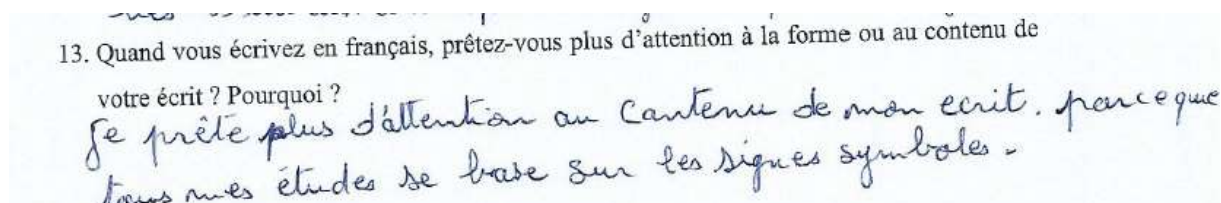 13. Quand vous écrivez en français, prêtez-vous plus d'attention à la forme ou au contenu de
votre écrit ? Pourquoi ?
Je prête plus d'attention au Contenu de mon ecrit. parceque
tous mes études se base sur les signes symboles.